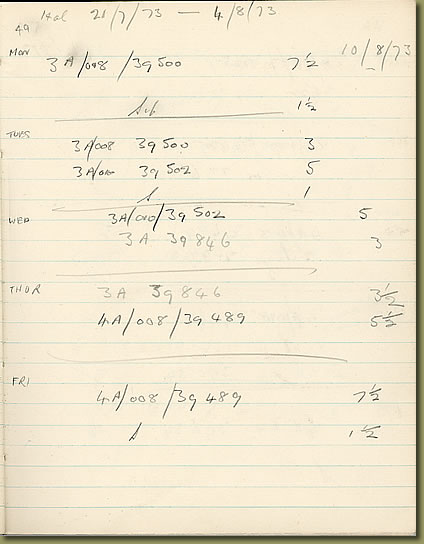 Hol 21/7/73 — 4/8/73
49
10/8/73
MON
3A/008 /39500 7½
1½
TUES
3A/008 39500 3
3A/010 39502 5
S 1
WED
3A/010/39502 5
3A 39846 3
THUR
3A 39846 3½
4A/008/39489 5½
FRI
4A/008/39489 7½
S 1½